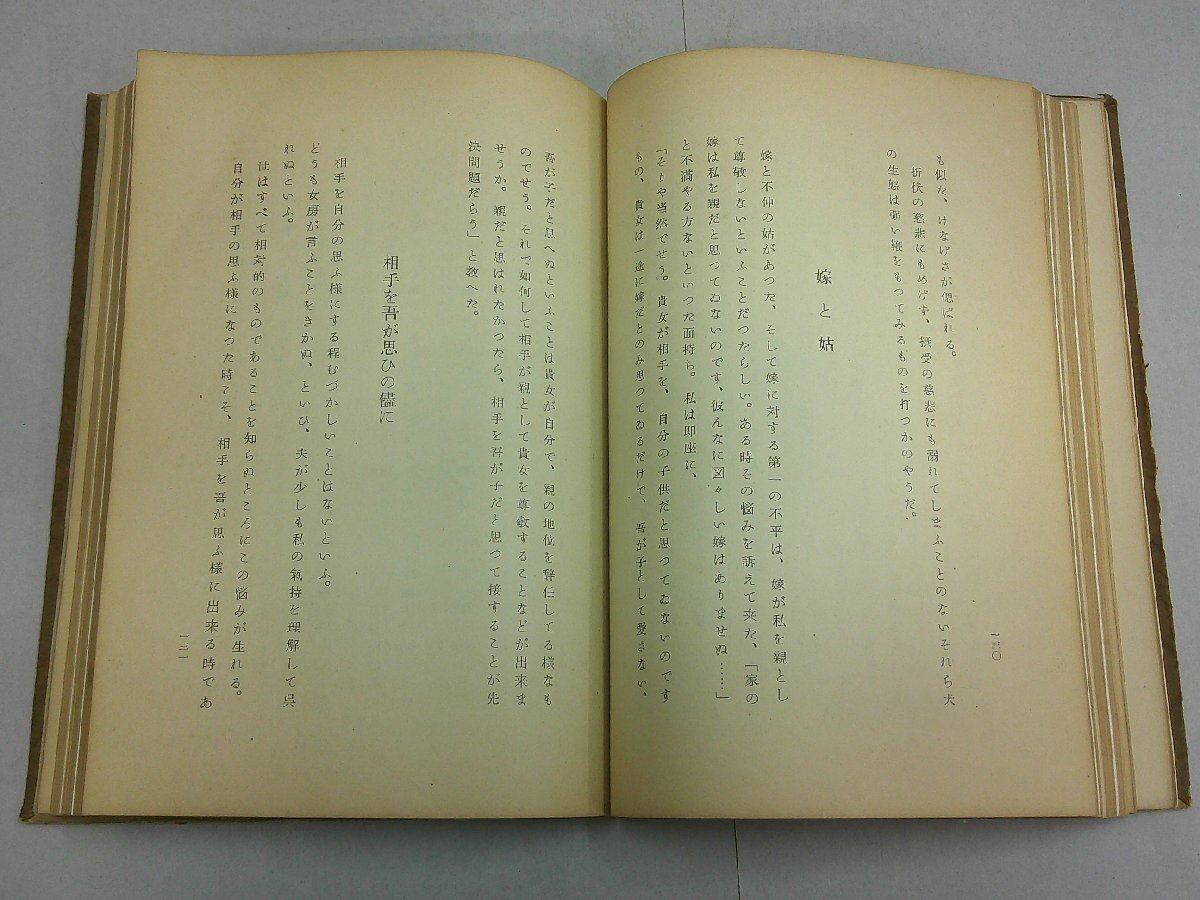 も似た、けなげさが偲ばれる。
折伏の慈悲にもめげず、摂受の慈悲にも溺れてしまふことのないそれら犬
の生態は強い鞭をもつてみるものを打つかのやうだ。
嫁と姑
嫁と不仲の姑があつた、そして嫁に対する第一の不平は、嫁が私を親とし
て尊敬しないといふことだつたらしい。ある時その悩みを訴えて来た、「家の
嫁は私を親だと思つてゐないのです、彼んなに図々しい嫁はありませぬ……」
と不満やる方ないといつた面持ち。私は即座に、
「そりや当然でせう。貴女が相手を、自分の子供だと思つてゐないのです
もの、貴女は一途に嫁だとのみ思つてゐるだけで、吾が子として愛さない、
一三〇
吾が子だと思へぬといふことは貴女が自分で、親の地位を辞任してる様なも
のでせう。それで如何して相手が親として貴女を尊敬することなどが出来ま
せうか。親だと思はれたかつたら、相手を吾が子だと思つて接することが先
決問題だらう」と教へた。
相手を吾が思ひの儘に
相手を自分の思ふ様にする程むづかしいことはないといふ。
どうも女房が言ふことをきかぬ、といひ、夫が少しも私の氣持を理解して呉
れぬといふ。
世はすべて相対的のものであることを知らぬところにこの悩みが生れる。
自分が相手の思ふ様になつた時こそ、相手を吾が思ふ様に出来る時であ
一三一